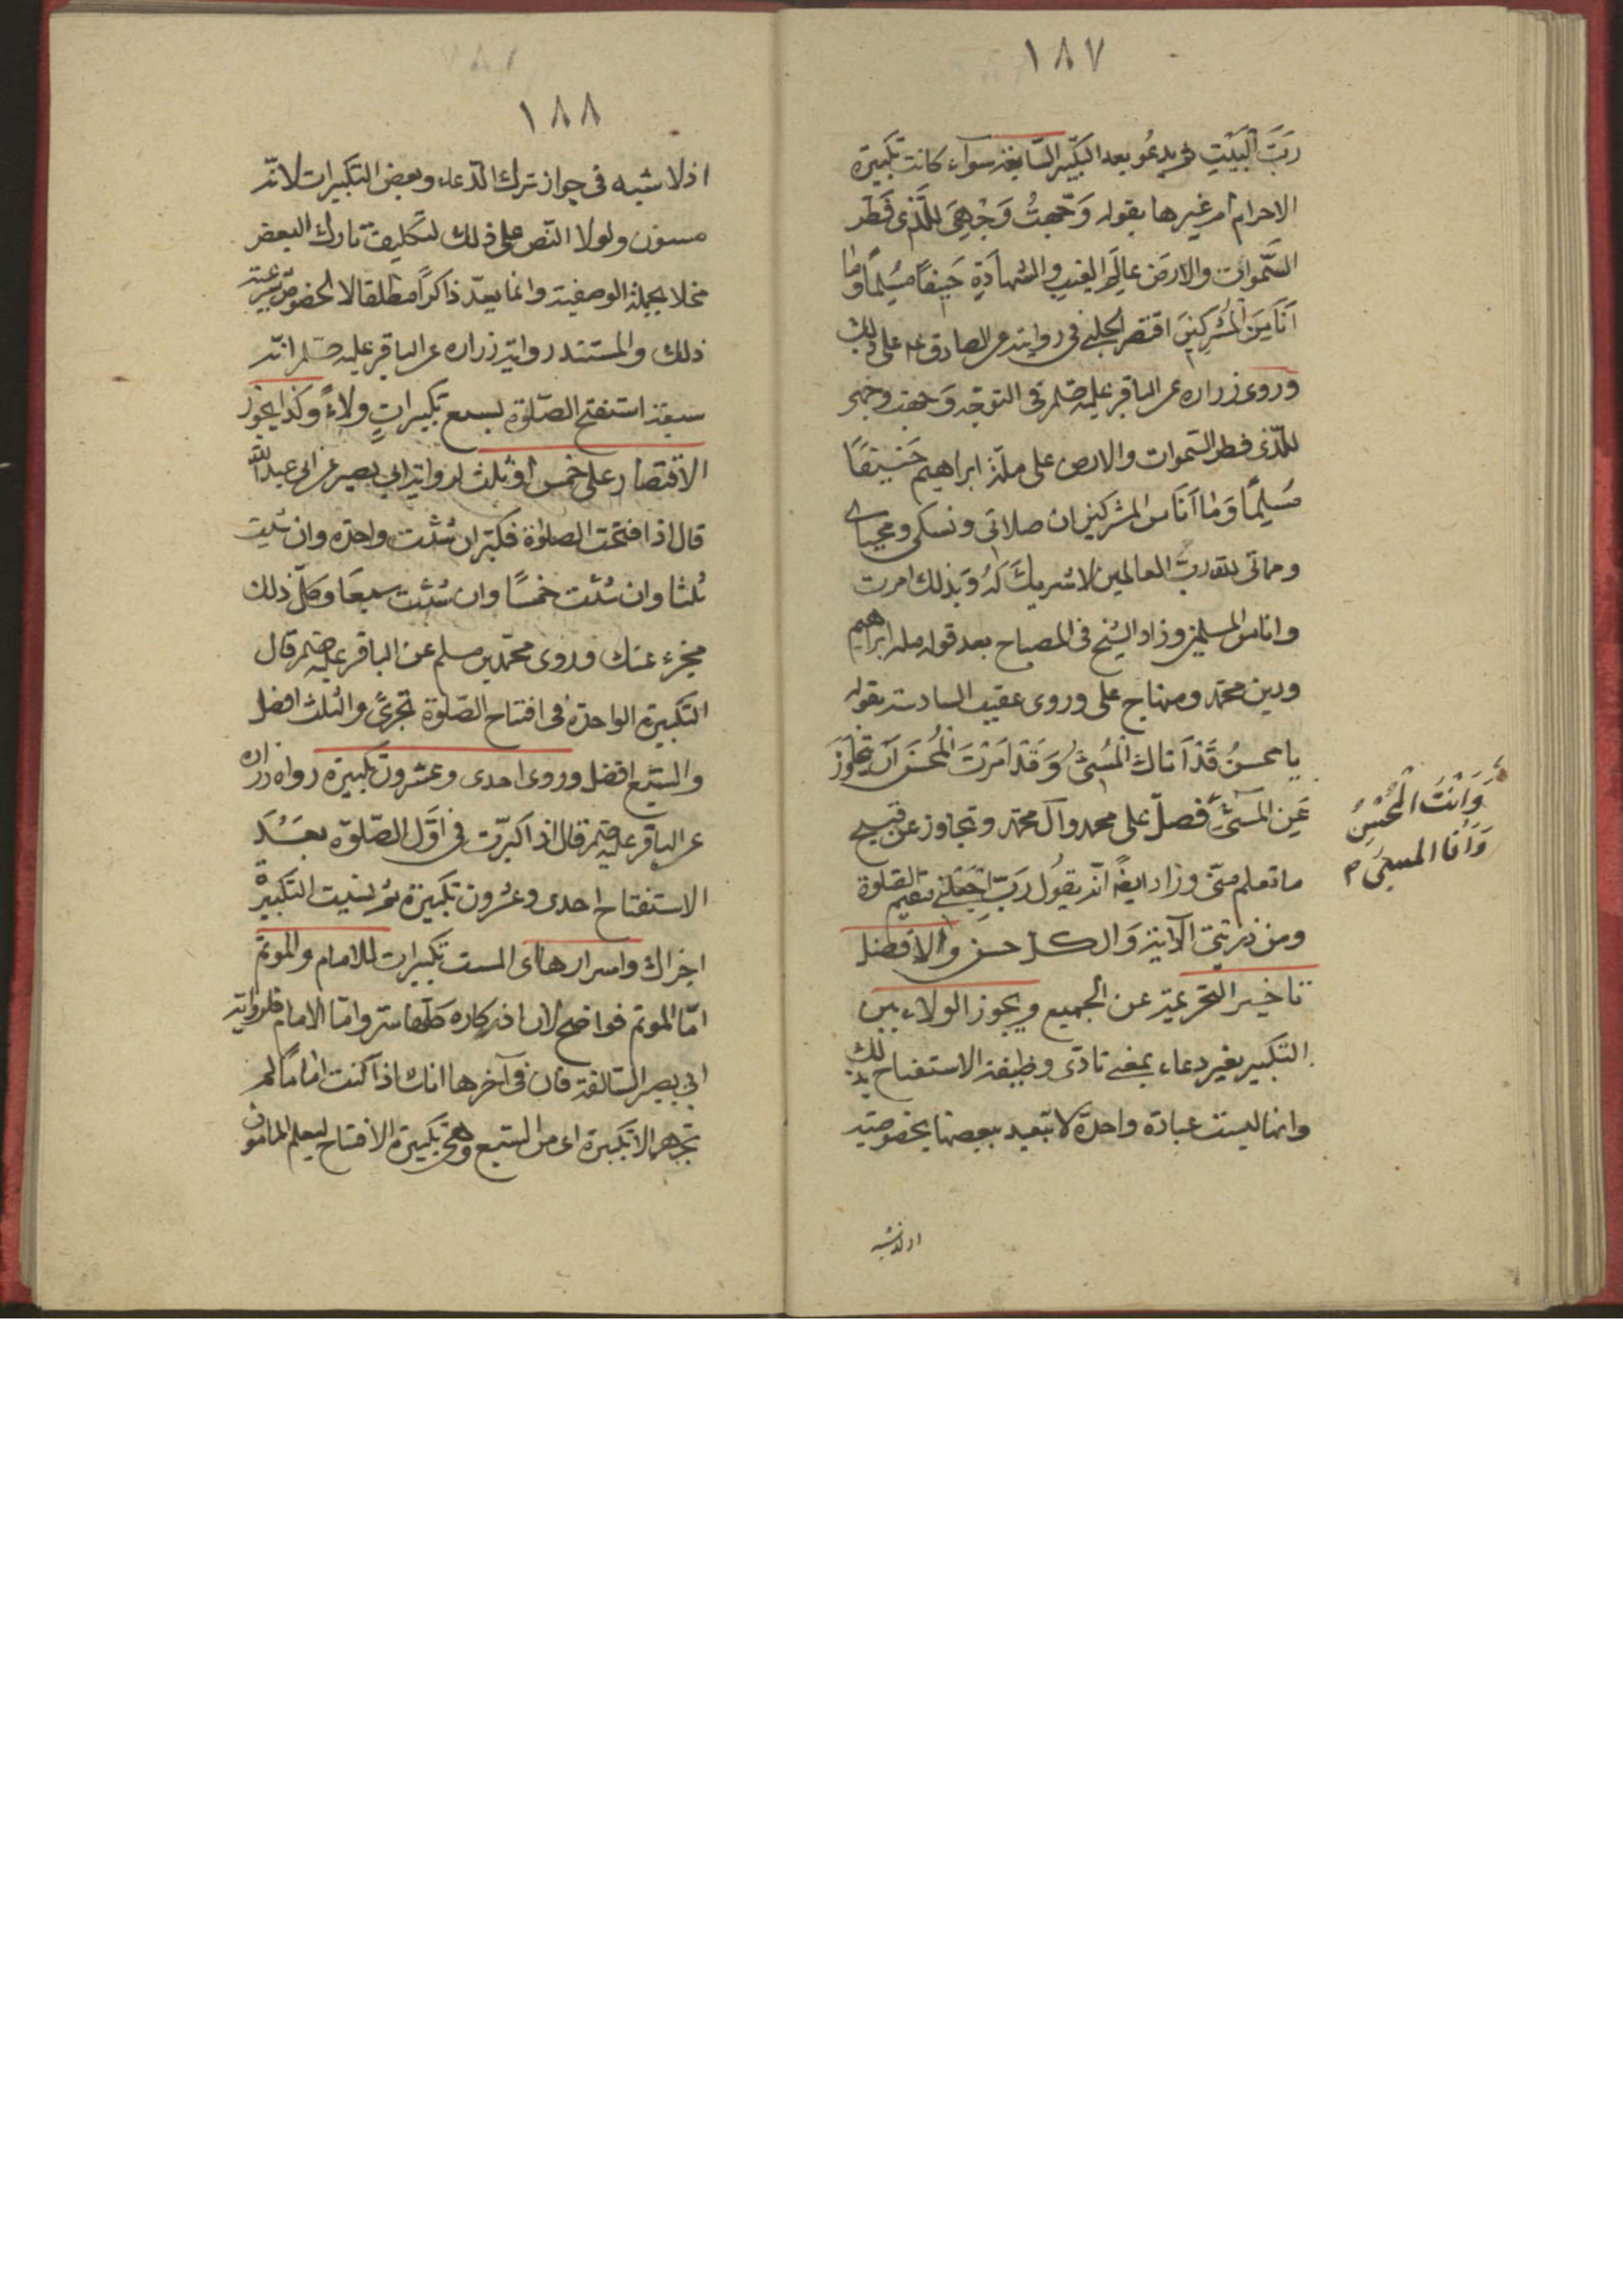 ١٨٧
رَبَّ الْبَيْتِ ثم يدعُو بعد التكبير السّابعة سواء كانت تكبيرة
الاحرام ام غيرها بقوله وَجّهتُ وَجْهِيَ لِلَّذى فَطَر
السَّموات والارضَ عالِم الغيب والشهادَةِ حَنيفاً مُسلِماً وما
اَنَا مِنَ الْمُشرِكينَ اقتصر الحلبى فى روايته عن الصادق عه على ذلك
وروى زراره عن الباقر عليه فى التوجّه وَجهت وجهى
للّذى فطر السّموات والارض على ملّة ابراهيم حَنيفًا
مُسلِمًا وَمٰا اَنَا من المشركين ان صلاتى ونسكى ومحياى
ومماتى لله ربّ العالمين لا شريكَ لَهُ وَبذلك امرت
وانا من المسلمين وزاد الشيخ فى المصباح بعد قوله مله ابراهيم
ودين محمّد ومنهاج على وروى عقيب السادسة بقوله
يا محسنُ قَدْ اَتاك الْمُسئُ وَقَدْ اَمَرْتَ الْمُحسنَ اَن يتجاوَزَ
عَنِ المسئِ فصلّ على محمد وآل محمّد وتجاوز عن قبيح
وَاَنْتَ الْمُحْسِنُ
وَاَنَا المسئ م
ما تعلم منّى وزاد ايضًا انّه يقُول رَبّ اجْعَلْنى مقيم الصّلوة
ومن ذريّتى الآية وَالكل حسن والافضل
تاخير التحريمة عن الجميع ويجوز الولاء بين
التكبير بغير دعاء بمعنى تادّى وظيفة الاستفتاح بذلك
وانما ليست عبادة واحدة لا تبعيد ببعضها بخصوصيّة
اذ لا شبه
١٨٨
اذ لا شبه فى جواز ترك الدّعاء وبعض التكبيرات لانّه
مسنون ولولا النّص على ذلك تارك البعض
مخلا بجملة الوصفية وانما يعدّ ذاكراً مطلقا لا بخصوص
ذلك والمستند رواية زراره عن الباقر عليه انّه
سمعته استفتح الصّلوة بسبع تكبيراتٍ ولاءً وكذا يجوز
الاقتصار على خمس او ثلث لرواية ابى بصير عن ابى عبد الله
قال اذا افتتحت الصلوٰة فكبّر ان شئت واحدة وان شئت
ثلثا وان شئت خمسًا وان شئت سبعًا وكلّ ذلك
مجزء عنك وروى محمّد بن مسلم عن الباقر عليه قال
التكبيرة الواحدة فى افتتاح الصّلوة تجزئ والثلث افضل
والسّبع افضل وروى احدى وعشرون تكبيرة رواه زراره
عن الباقر عليه قال اذا كبّرت فى اوّل الصّلوة بعَدَ
الاستفتاح احدى وعشرون تكبيرة ثم نسيت التكبير
اجزاك واسرارها اى الست تكبيرات للامام والموتم
امّا الموتم فواضح لان اذكاره كلها سر وامّا الامام فلرواية
ابى بصير السّالفة فان فى آخرها انك اذا كنت اماماً لم
تجهر الا تكبيرة اى من السّبع وهى تكبيرة الافتتاح ليعلم المامون